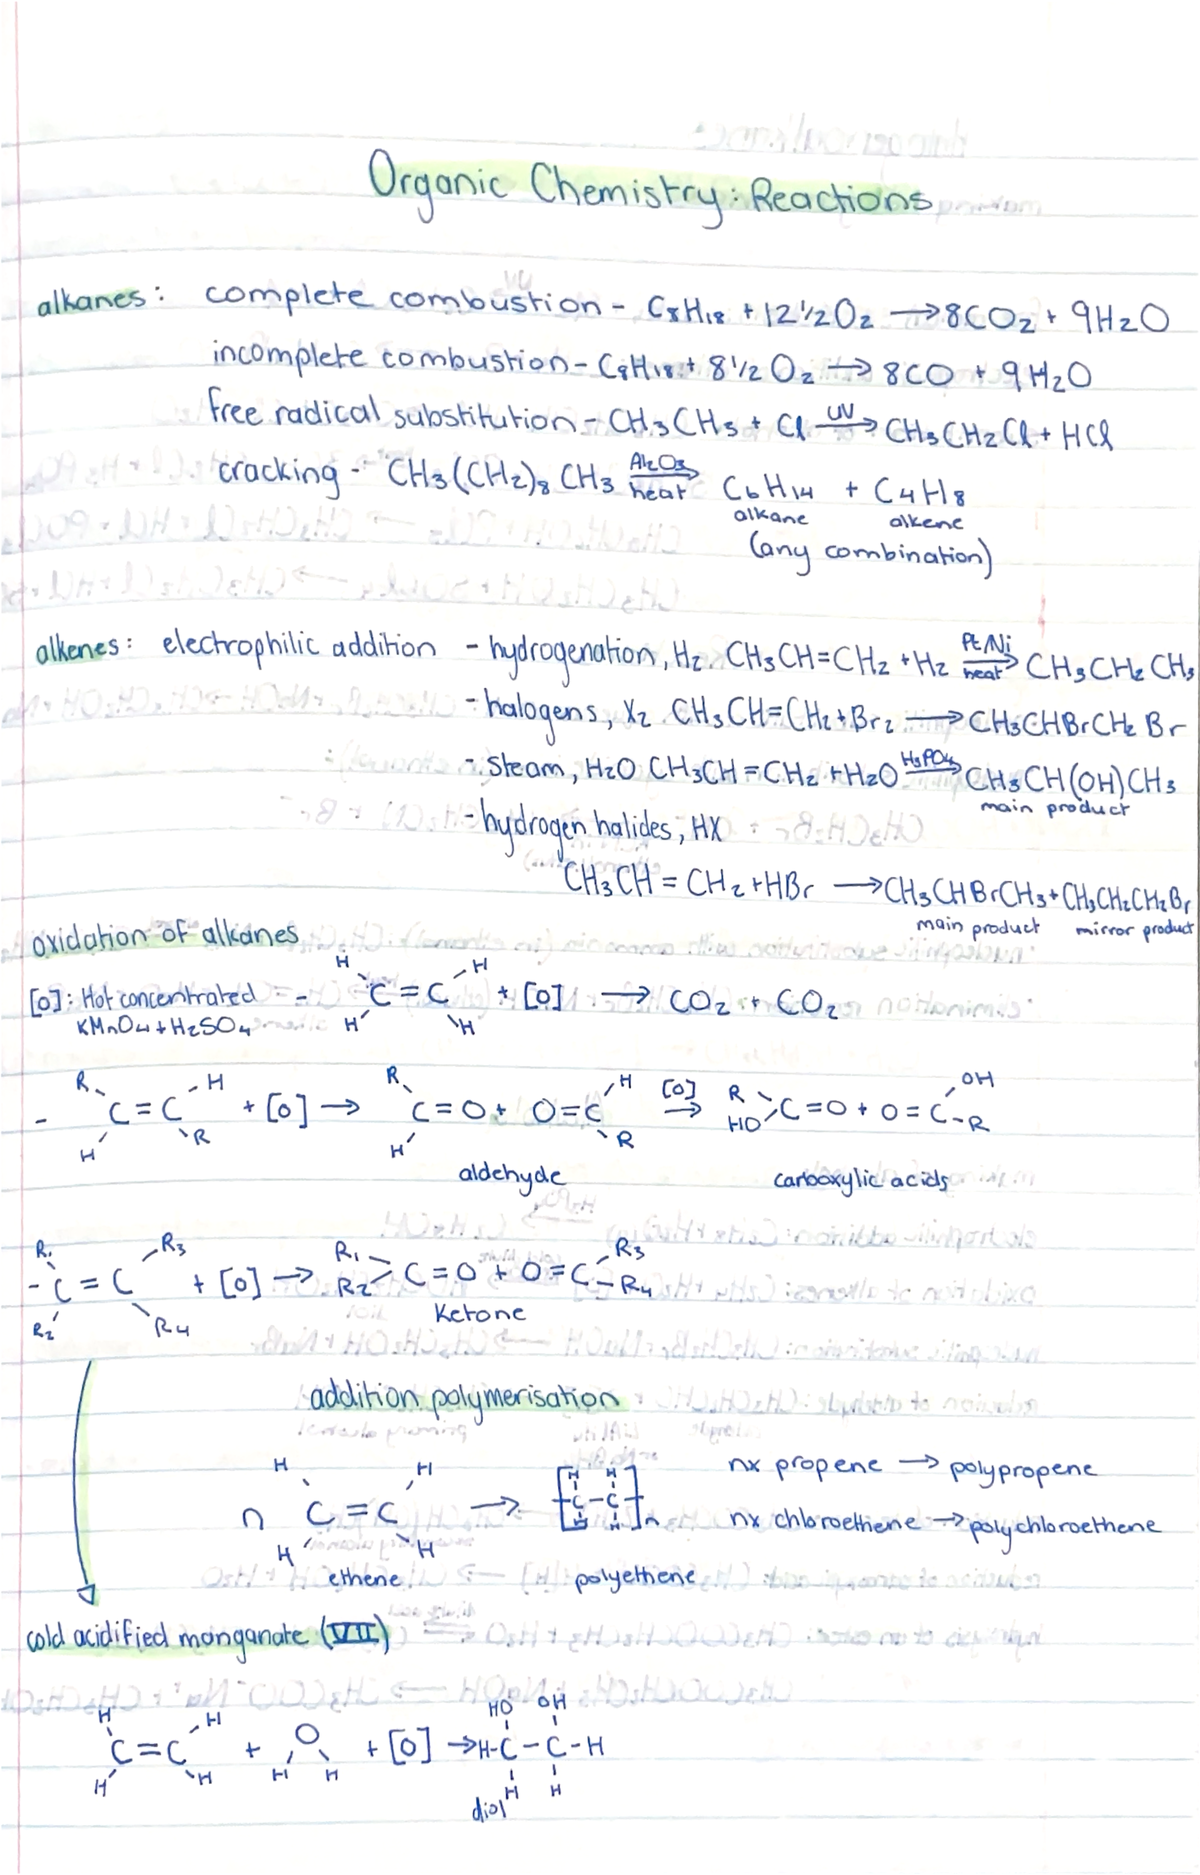 Organic Chemistry: Reactions
alkanes: complete combustion - C8H18 + 12 1/2 O2 → 8CO2 + 9H2O
incomplete combustion - C8H18 + 8 1/2 O2 → 8CO + 9H2O
free radical substitution - CH3CH3 + Cl UV→ CH3CH2Cl + HCl
cracking - CH3(CH2)8CH3 Al2O3 heat→ C6H14 + C4H8
alkane alkene
(any combination)
alkenes: electrophilic addition - hydrogenation, H2. CH3CH=CH2 + H2 Pt/Ni heat→ CH3CH2CH3
- halogens, X2 CH3CH=CH2 + Br2 → CH3CHBrCH2Br
- Steam, H2O CH3CH=CH2 + H2O H3PO4→ CH3CH(OH)CH3
main product
- hydrogen halides, HX
CH3CH=CH2 + HBr → CH3CHBrCH3 + CH3CH2CH2Br
main product mirror product
oxidation of alkanes
H H
[O]: Hot concentrated - C=C + [O] → CO2 + CO2
KMnO4 + H2SO4 H H
R H R H [O] R OH
- C=C + [O] → C=O + O=C → C=O + O=C-R
H R H R HO
aldehyde carboxylic acids
R1 R3 R1 R3
- C=C + [O] → C=O + O=C
R2 R4 R2 R4
Ketone
addition polymerisation
H H H H nx propene → polypropene
n C=C → [C-C]n nx chloroethene → polychloroethene
H H H H
ethene polyethene
cold acidified manganate (VII)
H H O HO OH
C=C + H H + [O] → H-C-C-H
H H H H
diol